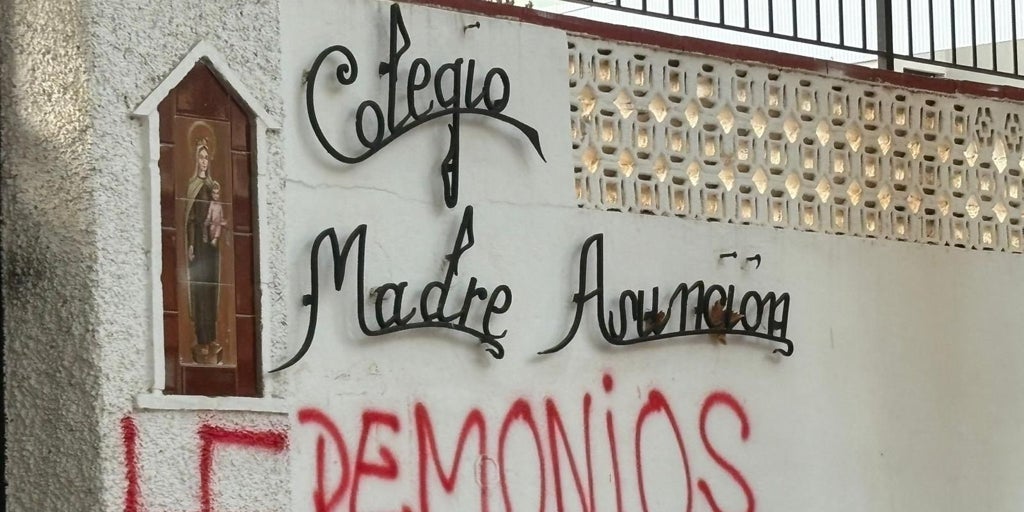 Colegio
Madre Asunción
DEMONiOS